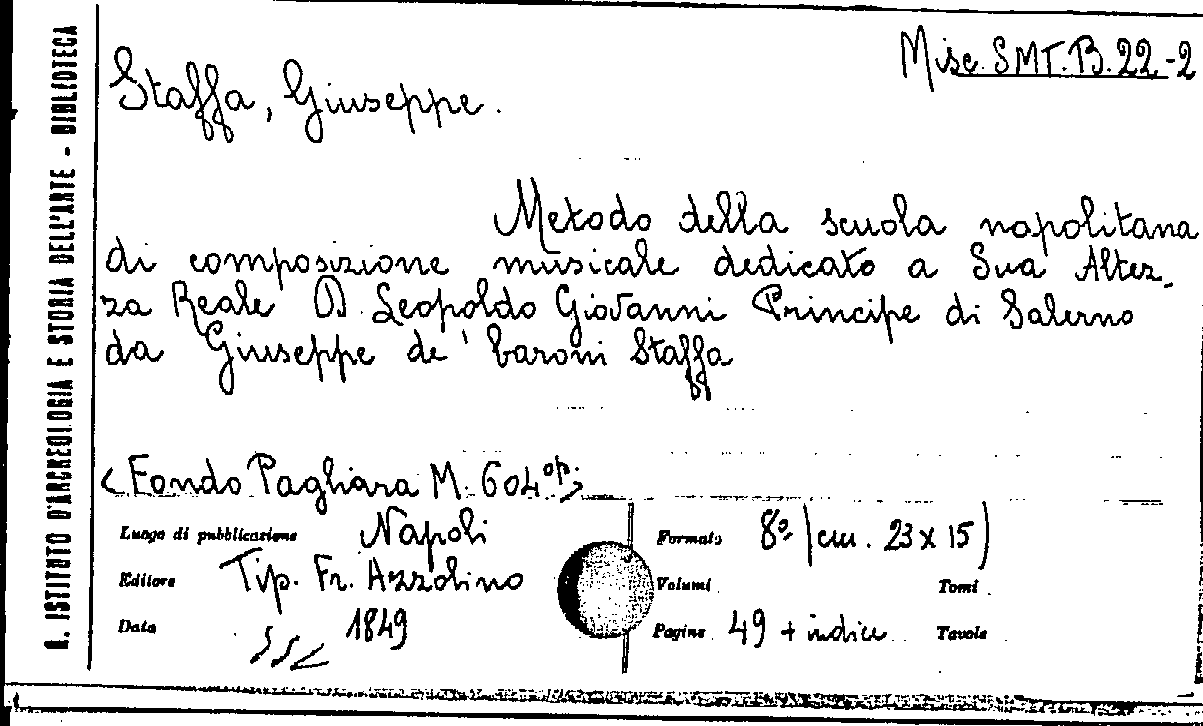 R. ISTITUTO D'ARCHEOLOGIA E STORIA DELL'ARTE - BIBLIOTECA
Misc. SMT. B. 22-2
Staffa, Giuseppe.
Metodo della scuola napolitana
di composizione musicale dedicato a Sua Altez-
za Reale D. Leopoldo Giovanni Principe di Salerno
da Giuseppe de' baroni Staffa
<Fondo Pagliara M. 604 op.>
Luogo di pubblicazione Napoli
Editore Tip. Fr. Azzolino
Data 1849
Formato 8º (cm. 23 x 15)
Volumi Tomi
Pagine 49 + indice Tavole